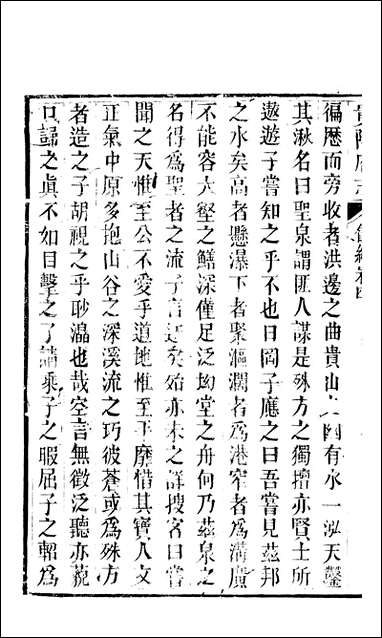 貴陽府志 餘編卷四
徧歴而旁收者洪邊之曲貴山之西有水一泓天鑿
其湫名曰聖泉謂匪人謀是殊方之獨擅亦賢士所
遨遊子嘗知之乎不也曰閻子應之曰吾嘗見茲邦
之水矣高者懸瀑下者聚漚濶者為港窄者為溝廣
不能容大壑之鱔深僅足泛坳堂之舟何乃茲泉之
名得為聖者之流子言迂矣始亦未之詳搜客曰嘗
聞之天惟至公不愛乎道地惟至正靡惜其寶人文
正氣中原多抱山谷之深溪流之巧彼蒼或為殊方
者造之子胡視之乎眇瀛也哉空言無徵泛聽亦藐
口歸之眞不如目擊之了請乘子之暇屈子之軺為